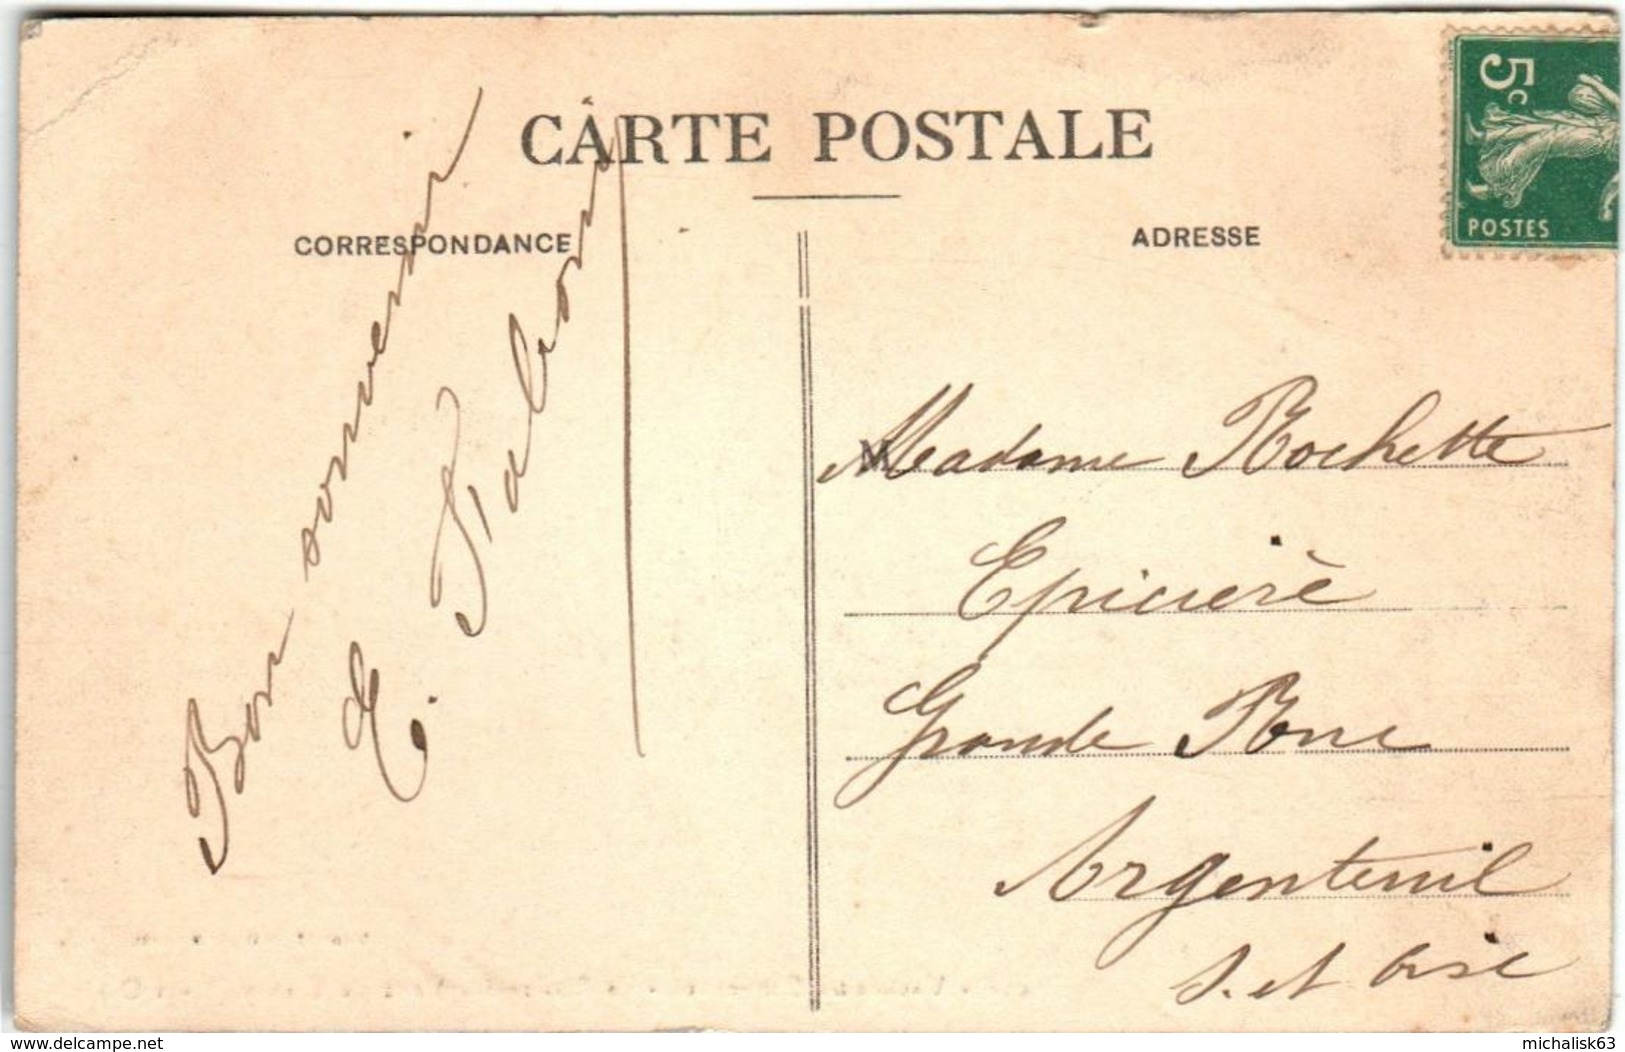 CARTE POSTALE
CORRESPONDANCE
ADRESSE
5c
POSTES
Bon souvenir
E.
M
Madame Rochette
Epicière
Grande Rue
Argenteuil
S. et Oise
www.delcampe.net
michalisk63